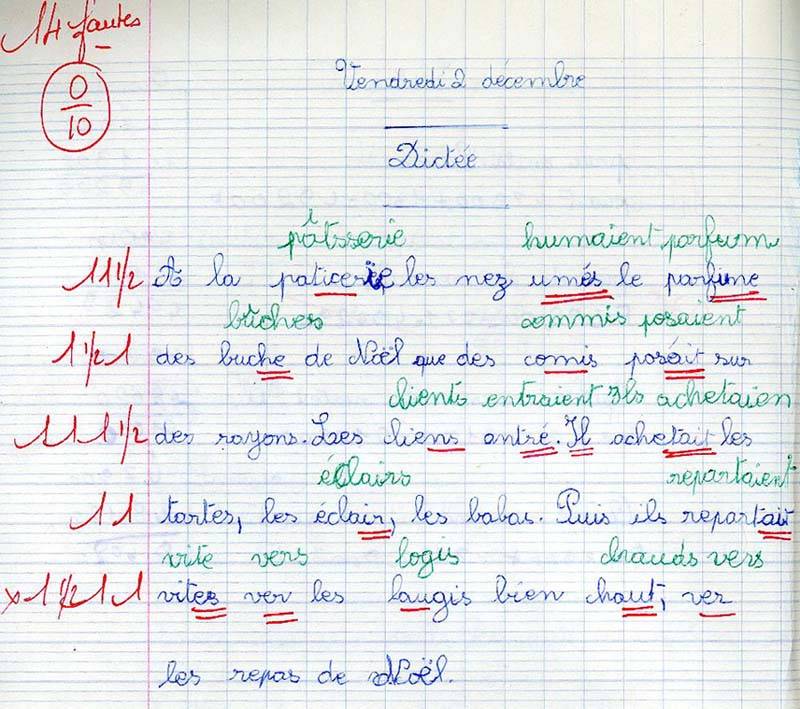 14 fautes
0
10
Vendredi 2 décembre
Dictée
pâtsserie humaient parfum
i
11 1/2 A la paticerie les nez umés le parfune
bûches commis posaient
1 1/2 1 des buche de Noël que des comis poséait sur
clients entraient Ils achetaien
1 1 1 1/2 des rayons. Les cliens antré. Il achetait les
éclairs repartaient
1 1 tartes, les éclair, les babas. Puis ils repartait
vite vers logis chauds vers
x 1 1/2 1 1 vites ver les laugis bien chaut, ver
les repas de Noël.